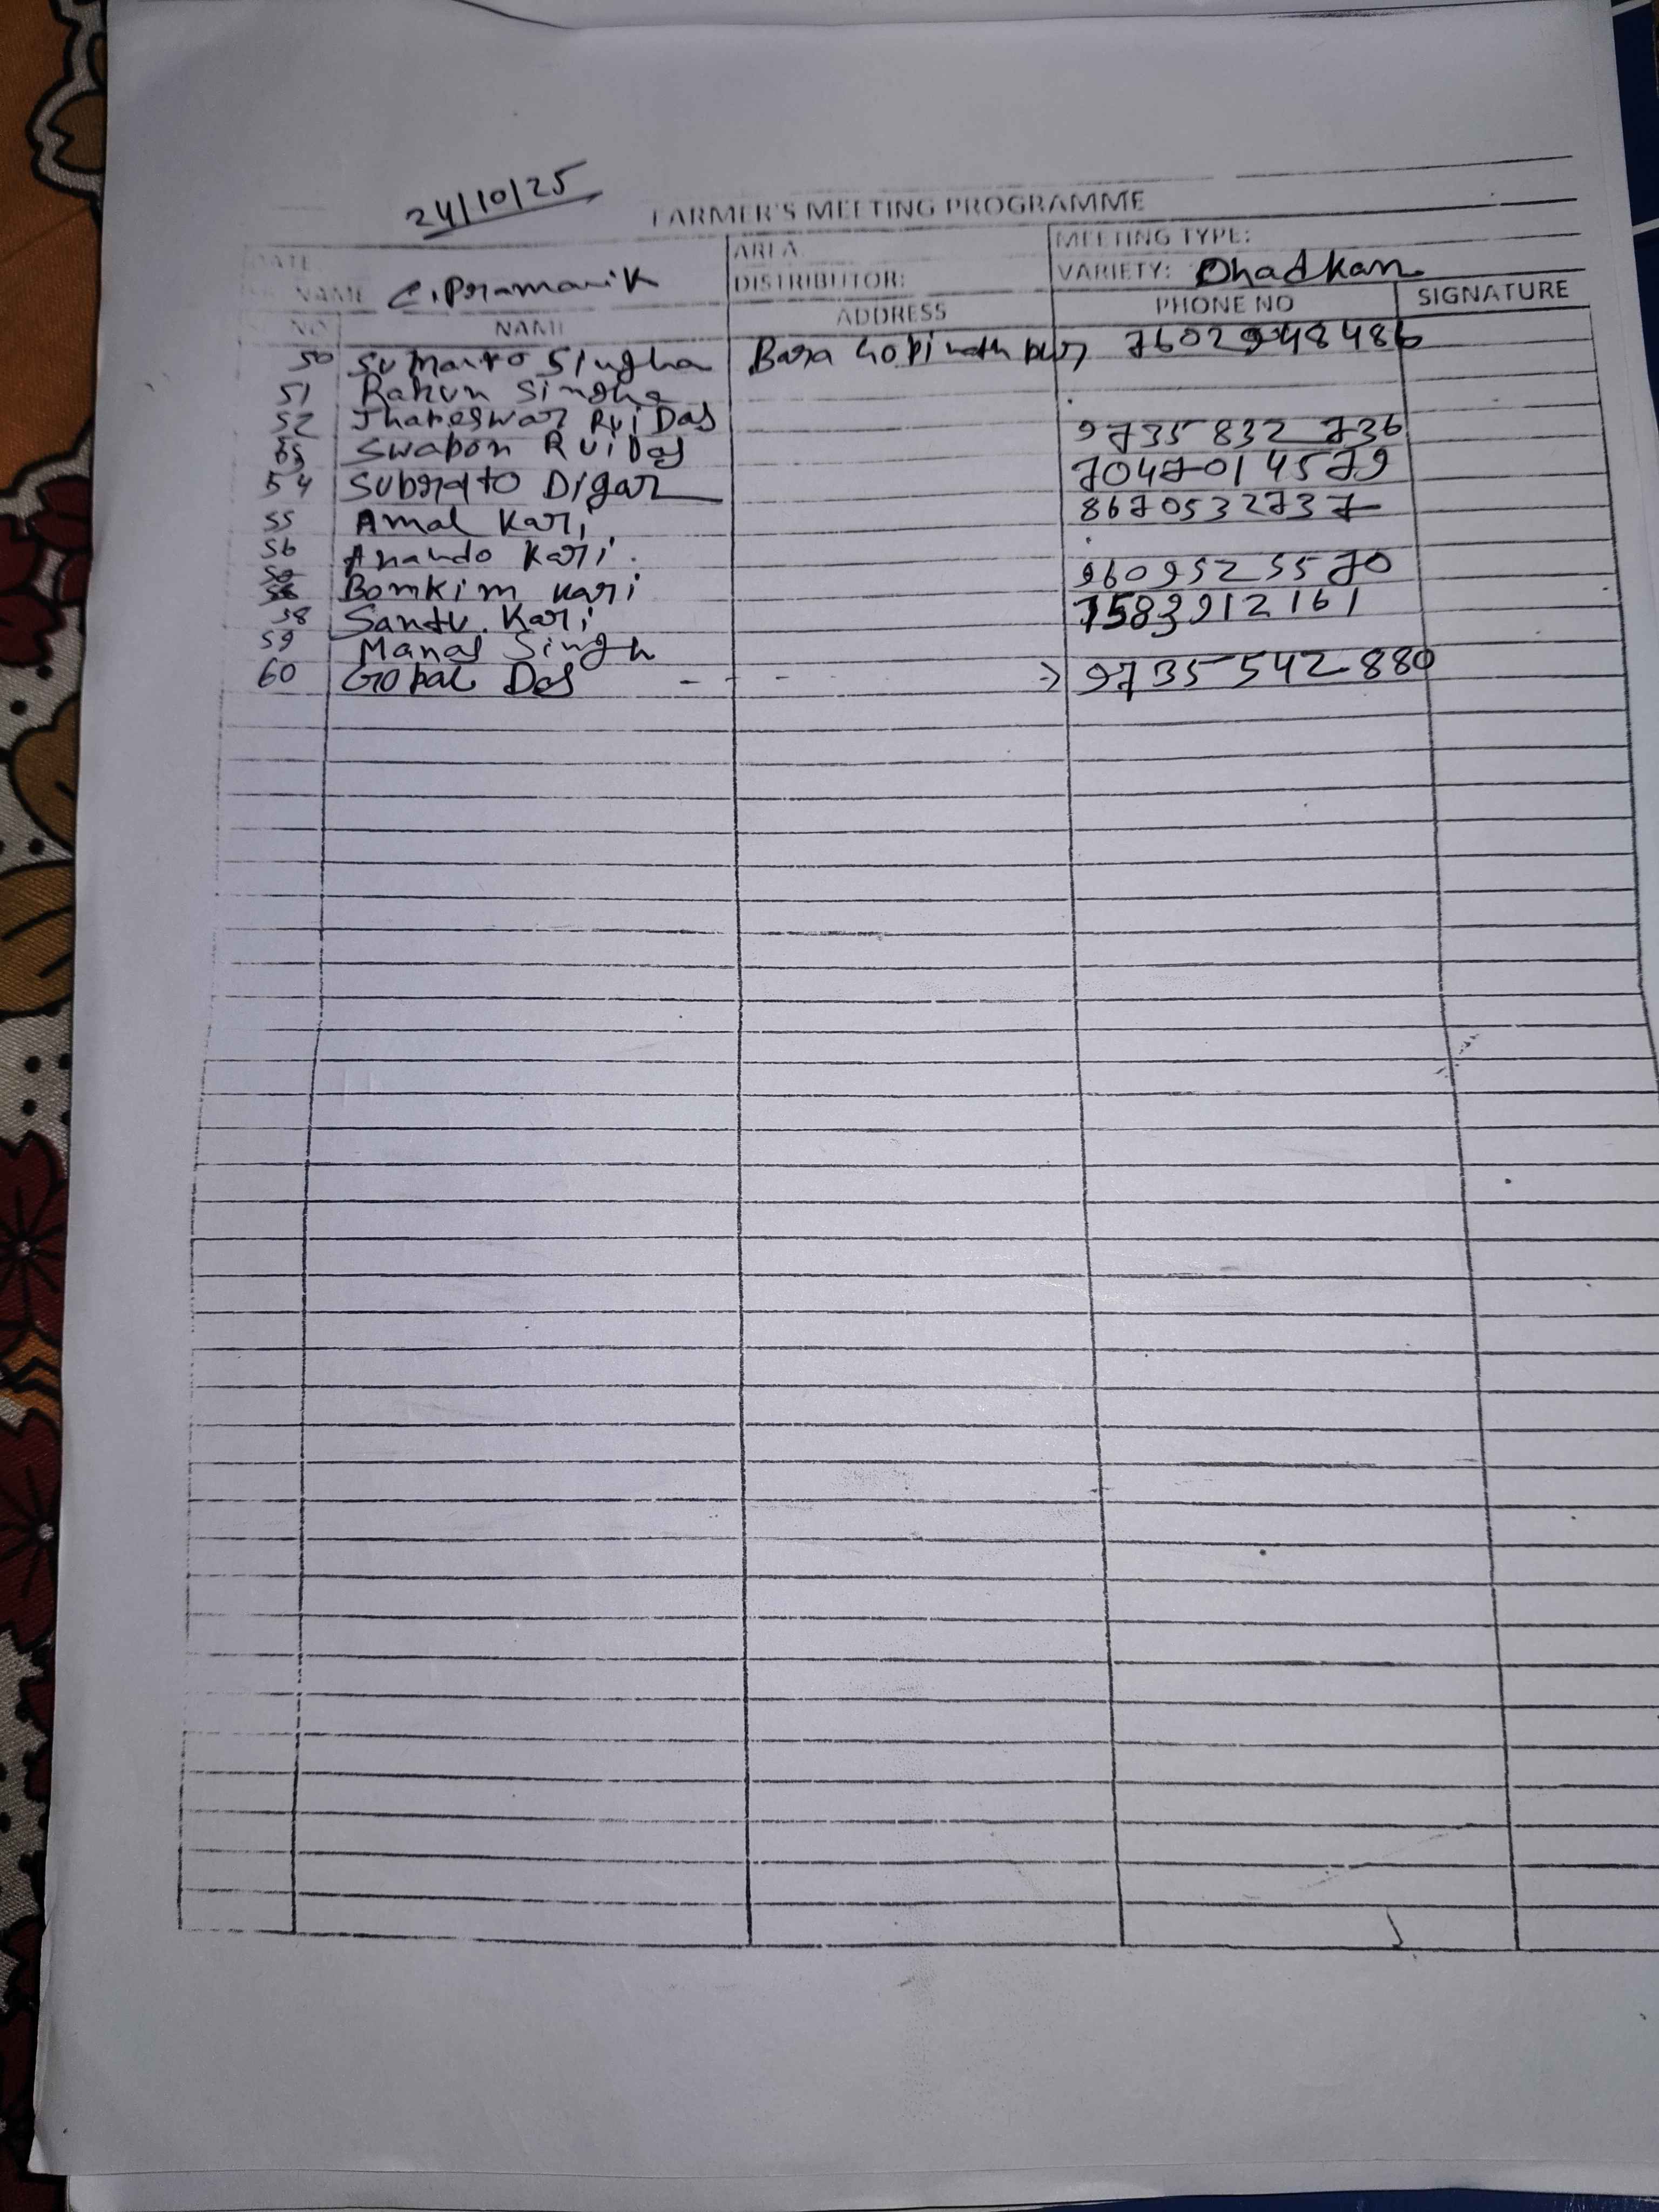 24/10/25
FARMER'S MEETING PROGRAMME
DATE
AREA
MEETING TYPE:
NAME C. Pramanik
DISTRIBUTOR:
VARIETY: Dhadkan
NO
NAME
ADDRESS
PHONE NO
SIGNATURE
50 Sumanto Singha Bara Gopinathpur 7602948486
51 Rahun Singha
52 Jhareswar Rui Das 9735 832 736
53 Swapon Rui Das 7047014579
54 Subrato Digar 8670532737
55 Amal Kari
56 Anando Kari 9609525570
Bomkim Kari 7583912161
58 Santu. Kari
59 Manas Singh
60 Gopal Das - - - - → 9735542880